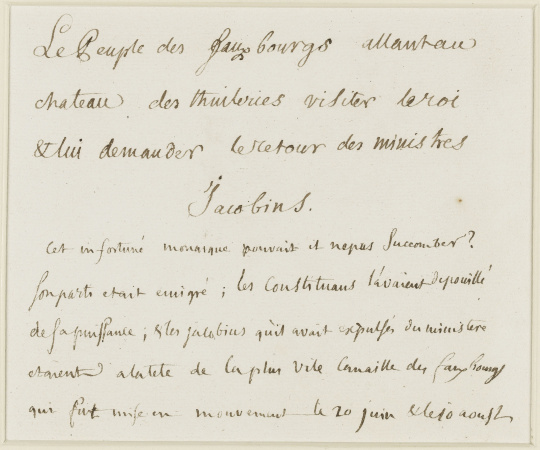 Le Peuple des fauxbourgs allantau
chateau des thuileries visiter le roi
& lui demander le retour des ministres
Jacobins.
Cet infortuné monarque pouvait il nepas Succomber?
Son parti etait emigré ; les Constituans l'avaient depouillé
de sa puissance ; & les jacobins qu'il avait expulsés du ministere
etaient a la tete de la plus vile Canaille des fauxbourgs
qui fut mise en mouvement le 20 juin & le 10 aoust